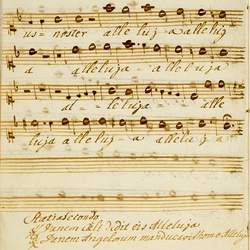 us noster alleluja alleluj
a alleluja alleluja
al leluja alle
luja alleluja alleluja
Panem Cæli dedit eis Alleluja
Panem Angelorum manducavit homo Alleluja